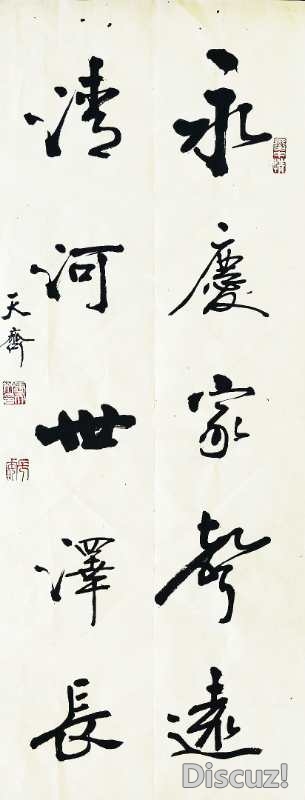 永慶家聲遠
清河世澤長
天齊
Discuz!